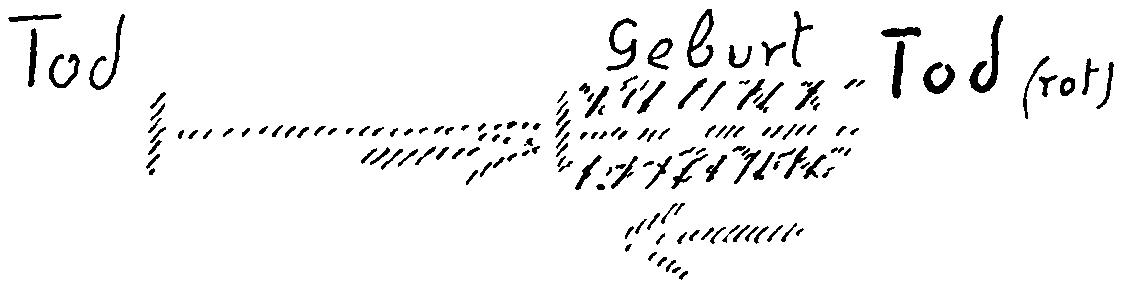 Tod Geburt Tod (rot)